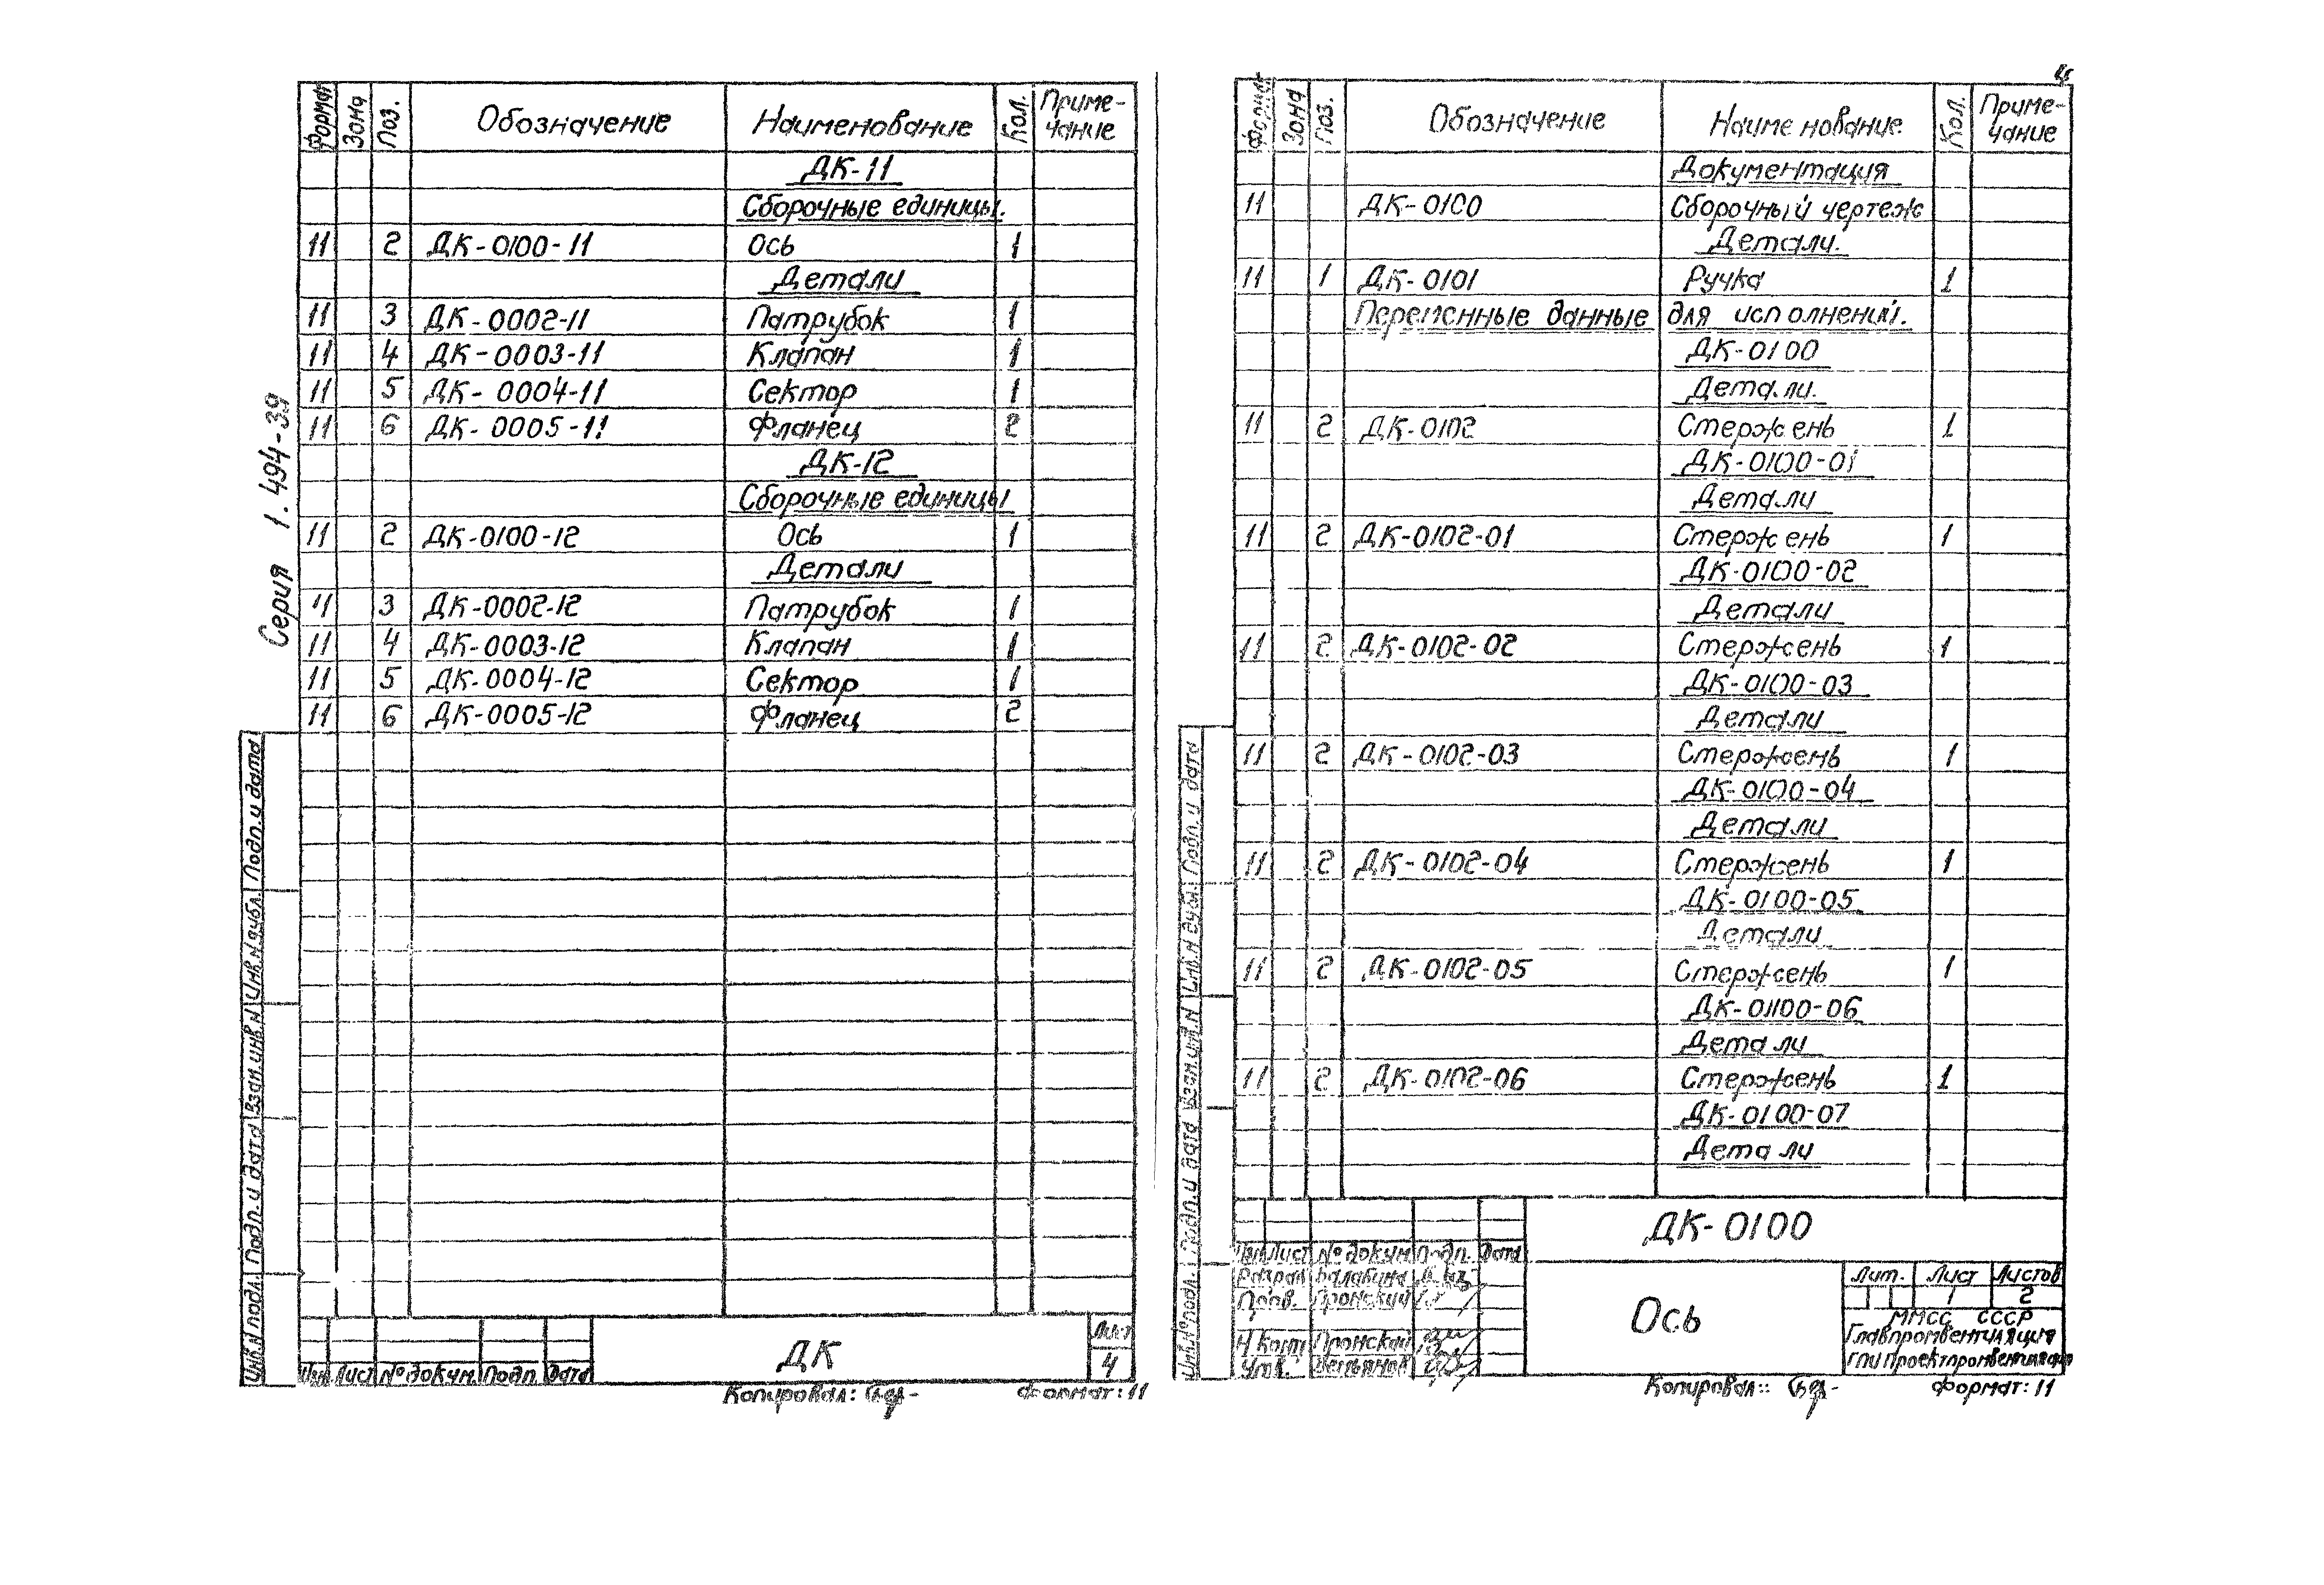 Серия 1.494-39
Формат Зона Поз. Обозначение Наименование Кол. Приме-
чание
ДК-11
Сборочные единицы.
11 2 ДК-0100-11 Ось 1
Детали
11 3 ДК-0002-11 Патрубок 1
11 4 ДК-0003-11 Клапан 1
11 5 ДК-0004-11 Сектор 1
11 6 ДК-0005-11 Фланец 2
ДК-12
Сборочные единицы
11 2 ДК-0100-12 Ось 1
Детали
11 3 ДК-0002-12 Патрубок 1
11 4 ДК-0003-12 Клапан 1
11 5 ДК-0004-12 Сектор 1
11 6 ДК-0005-12 Фланец 2
Инв.N подл. Подп. и дата Взам.инв.N Инв.N дубл. Подп. и дата
Лист № докум. Подп. Дата
ДК
Лист
4
Копировал:
Формат: 11
4
Формат Зона Поз. Обозначение Наименование Кол. Приме-
чание
Документация
11 ДК-0100 Сборочный чертеж
Детали.
11 1 ДК-0101 Ручка 1
Переменные данные для исполнений.
ДК-0100
Детали.
11 2 ДК-0102 Стержень 1
ДК-0100-01
Детали
11 2 ДК-0102-01 Стержень 1
ДК-0100-02
Детали
11 2 ДК-0102-02 Стержень 1
ДК-0100-03
Детали
11 2 ДК-0102-03 Стержень 1
ДК-0100-04
Детали
11 2 ДК-0102-04 Стержень 1
ДК-0100-05
Детали
11 2 ДК-0102-05 Стержень 1
ДК-0100-06
Детали
11 2 ДК-0102-06 Стержень 1
ДК-0100-07
Детали
Инв.№ подл. Подп. и дата Взам.инв.N Инв.N дубл. Подп. и дата
Лист № докум Подп. Дата
Разраб Балабина
Пров. Пронский
Н.конт Пронский
Утв.
ДК-0100
Ось
Лит. Лист Листов
1 2
ММСС СССР
Главпромвентиляция
ГПИ Проектпромвентиляция
Копировал:
Формат: 11